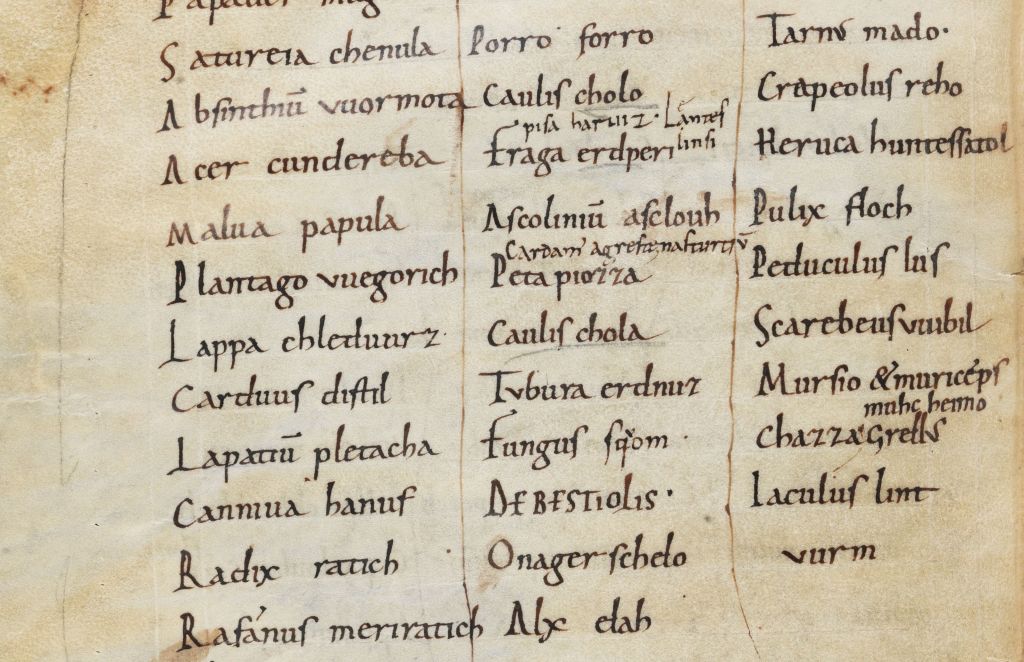 Papauer mag
Satureia chenula
Absinthiū vuormota
Acer cundereba
Malua papula
Plantago vuegorich
Lappa chleduurz
Carduus distil
Lapatiū pletacha
Canniua hanuf
Radix ratich
Rafanus meriratich
Porro forro
Caulis cholo
pisa haruuiz. Lantes
Fraga erdperi linsi
Ascoliniū asclouh
Cardam agreste nasturtiū
Peta piozza
Caulis chola
Tubura erdnuz
Fungus
DE BESTIOLIS.
Onager schelo
Alx elah
mado.
Crapeolus reho
Heruca huntessatol
Pulix floch
Peduculus lus
Scarebeus vuibil
Mursio & muriceps
muhc heimo
chazza Grellus
Iaculus lint
vurm